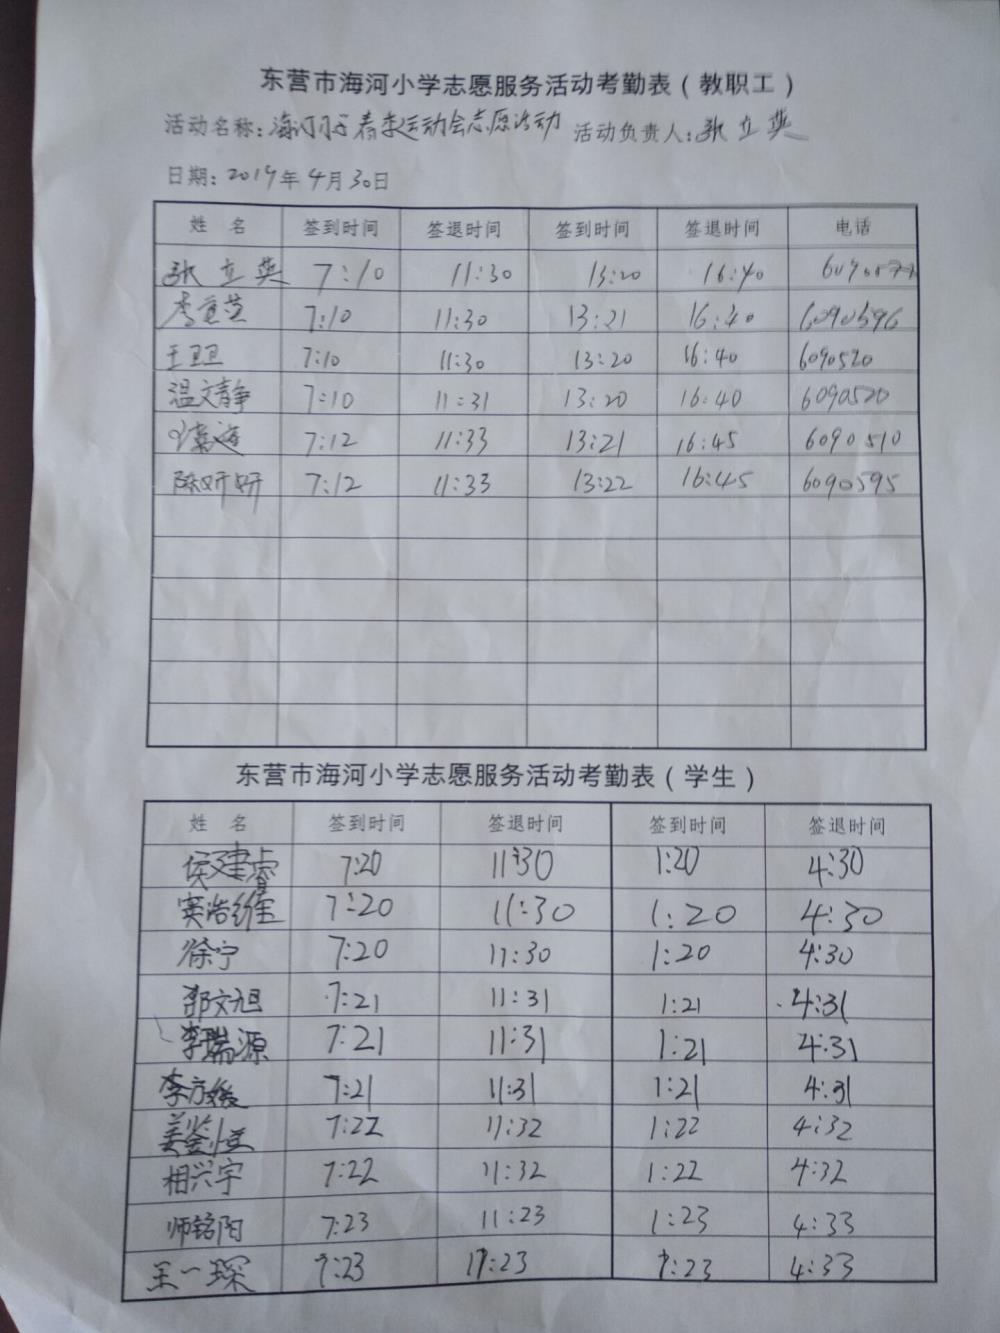 东营市海河小学志愿服务活动考勤表（教职工）
活动名称：海河小学春季运动会志愿活动 活动负责人：张立英
日期：2019年4月30日
姓名 签到时间 签退时间 签到时间 签退时间 电话
张立英 7:10 11:30 13:20 16:40
7:10 11:30 13:21 16:40 6090596
王卫卫 7:10 11:30 13:20 16:40 6090520
温文静 7:10 11:31 13:20 16:40 6090520
7:12 11:33 13:21 16:45 6090510
陈妍妍 7:12 11:33 13:22 16:45 6090595
东营市海河小学志愿服务活动考勤表（学生）
姓名 签到时间 签退时间 签到时间 签退时间
侯建睿 7:20 11:30 1:20 4:30
窦浩维 7:20 11:30 1:20 4:30
徐宁 7:20 11:30 1:20 4:30
邵文旭 7:21 11:31 1:21 4:31
李瑞源 7:21 11:31 1:21 4:31
李方媛 7:21 11:31 1:21 4:31
姜鉴恒 7:22 11:32 1:22 4:32
相兴宇 7:22 11:32 1:22 4:32
师铭阳 7:23 11:23 1:23 4:33
王一琛 7:23 11:23 1:23 4:33